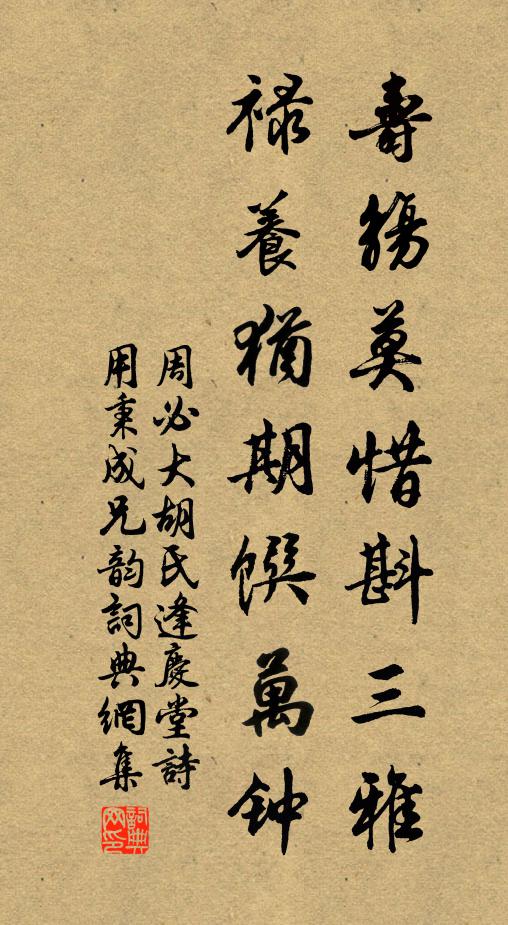 壽觴莫惜斟三雅
祿養猶期饌萬钟
周必大胡氏逢慶堂詩
用秉成兄韵詞典網集
詞典网印